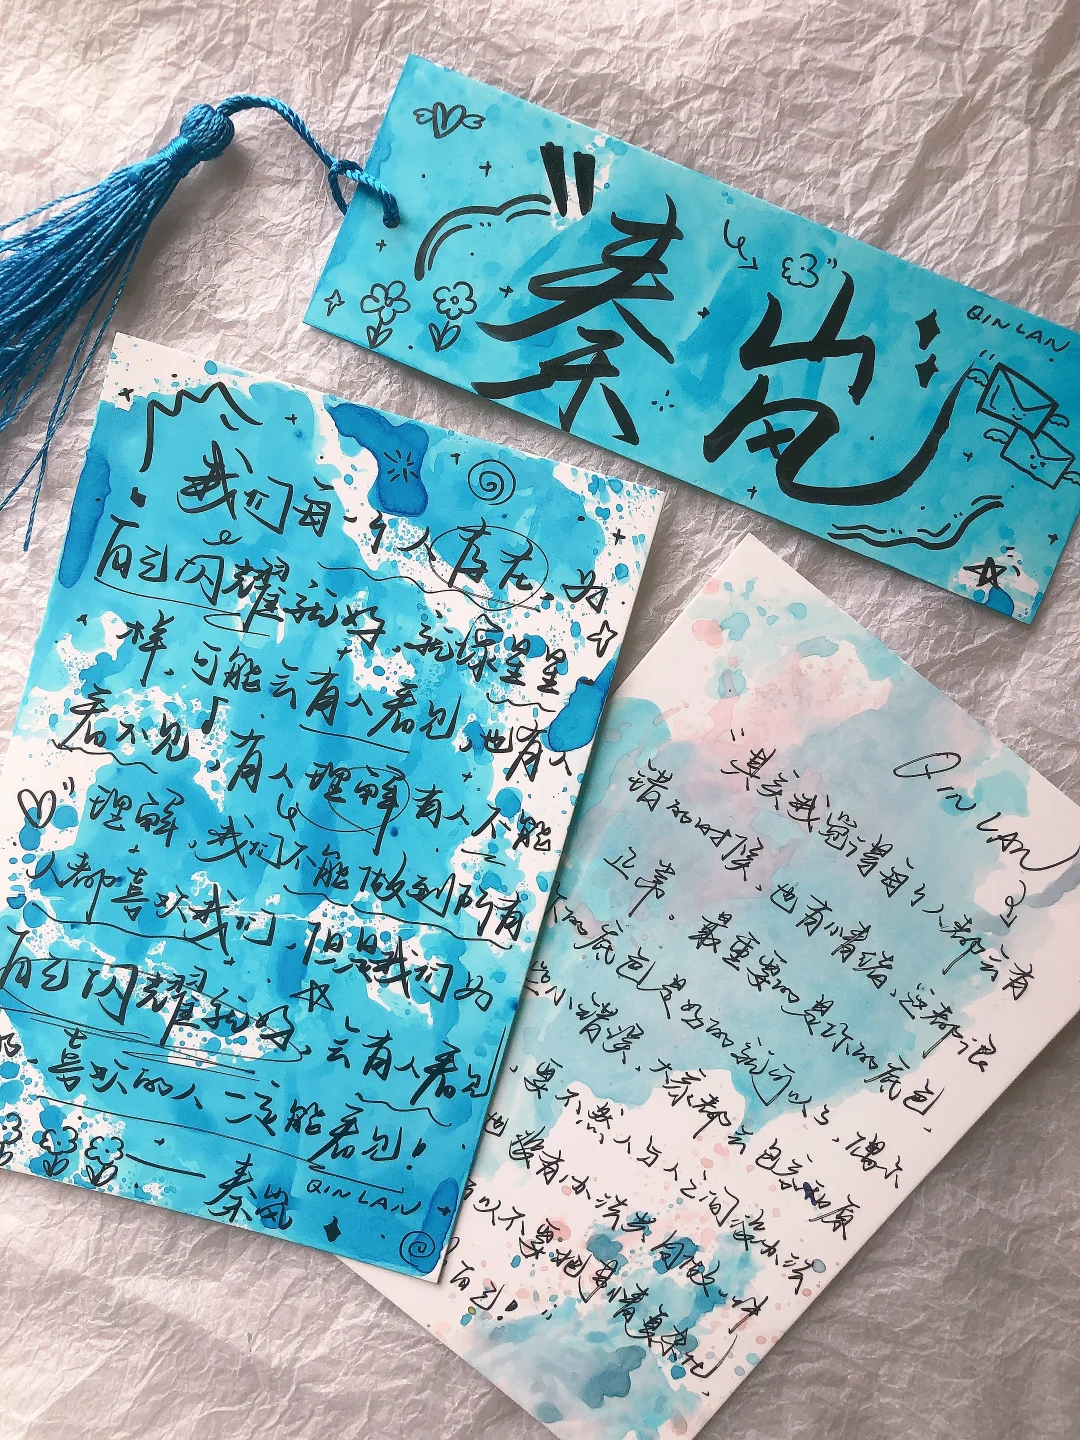 秦岚
QINLAN
我们每一个人存在,为
自己闪耀就好,就像星星一
样,可能会有人看见,也有人
看不见,有人理解有人不能
理解,我们不能做到所有
人都喜欢我们,但是我们为
自己闪耀就好,会有人看见
喜欢的人一定能看见!
——秦岚
QINLAN
QIN LAN
"其实我觉得每个人都会有
错的时候,也有情绪,这都很
正常。最重要的是你的底色,
的底色是好的就可以了,偶尔
小错误,大家都会包容和原
,要不然人与人之间没办法
也没有办法共同做一件
以不要把事情复杂化,
自己!